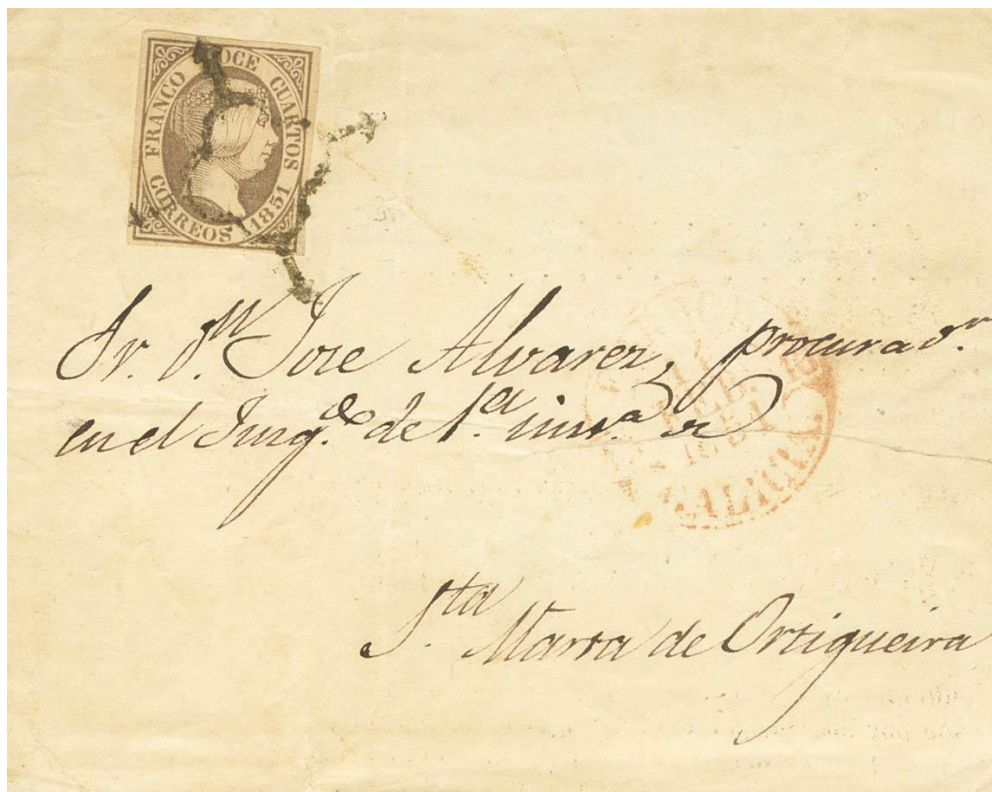 FRANCO DOCE CUARTOS
CORREOS 1851
Sr. Dn. Jose Alvarez, procurador.
en el Juzg.do de 1.a inst.a de
1851
GALICIA
Sta. Marta de Ortigueira